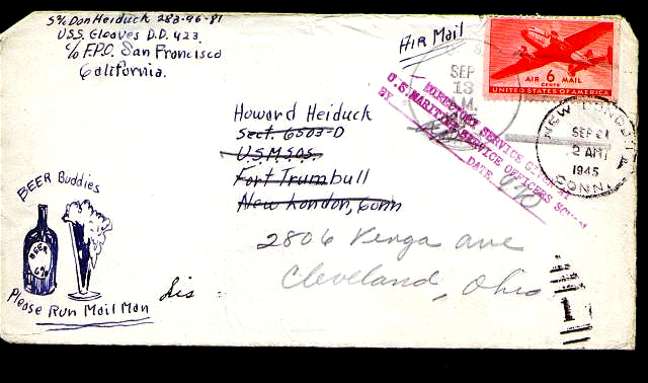 S 2/c Don Heiduck 283-96-81
U.S.S. Gleaves D.D. 423.
c/o F.P.O. San Francisco
California.
Air Mail
SEP
13
M.
AIR 6 MAIL
CENTS
UNITED STATES OF AMERICA
DIRECTORY SERVICE GIVEN AT
U.S. MARITIME SERVICE OFFICERS SCHOOL
BY
DATE
NEW LONDON
SEP 21
2 AM
1945
CONN.
Howard Heiduck
Sect. 6503-D
U.S.M.S.O.S.
Fort Trumbull
New London, Conn
2806 Venga ave
Cleveland, Ohio
BEER Buddies
BEER
6%
Please Run Mail Man
1